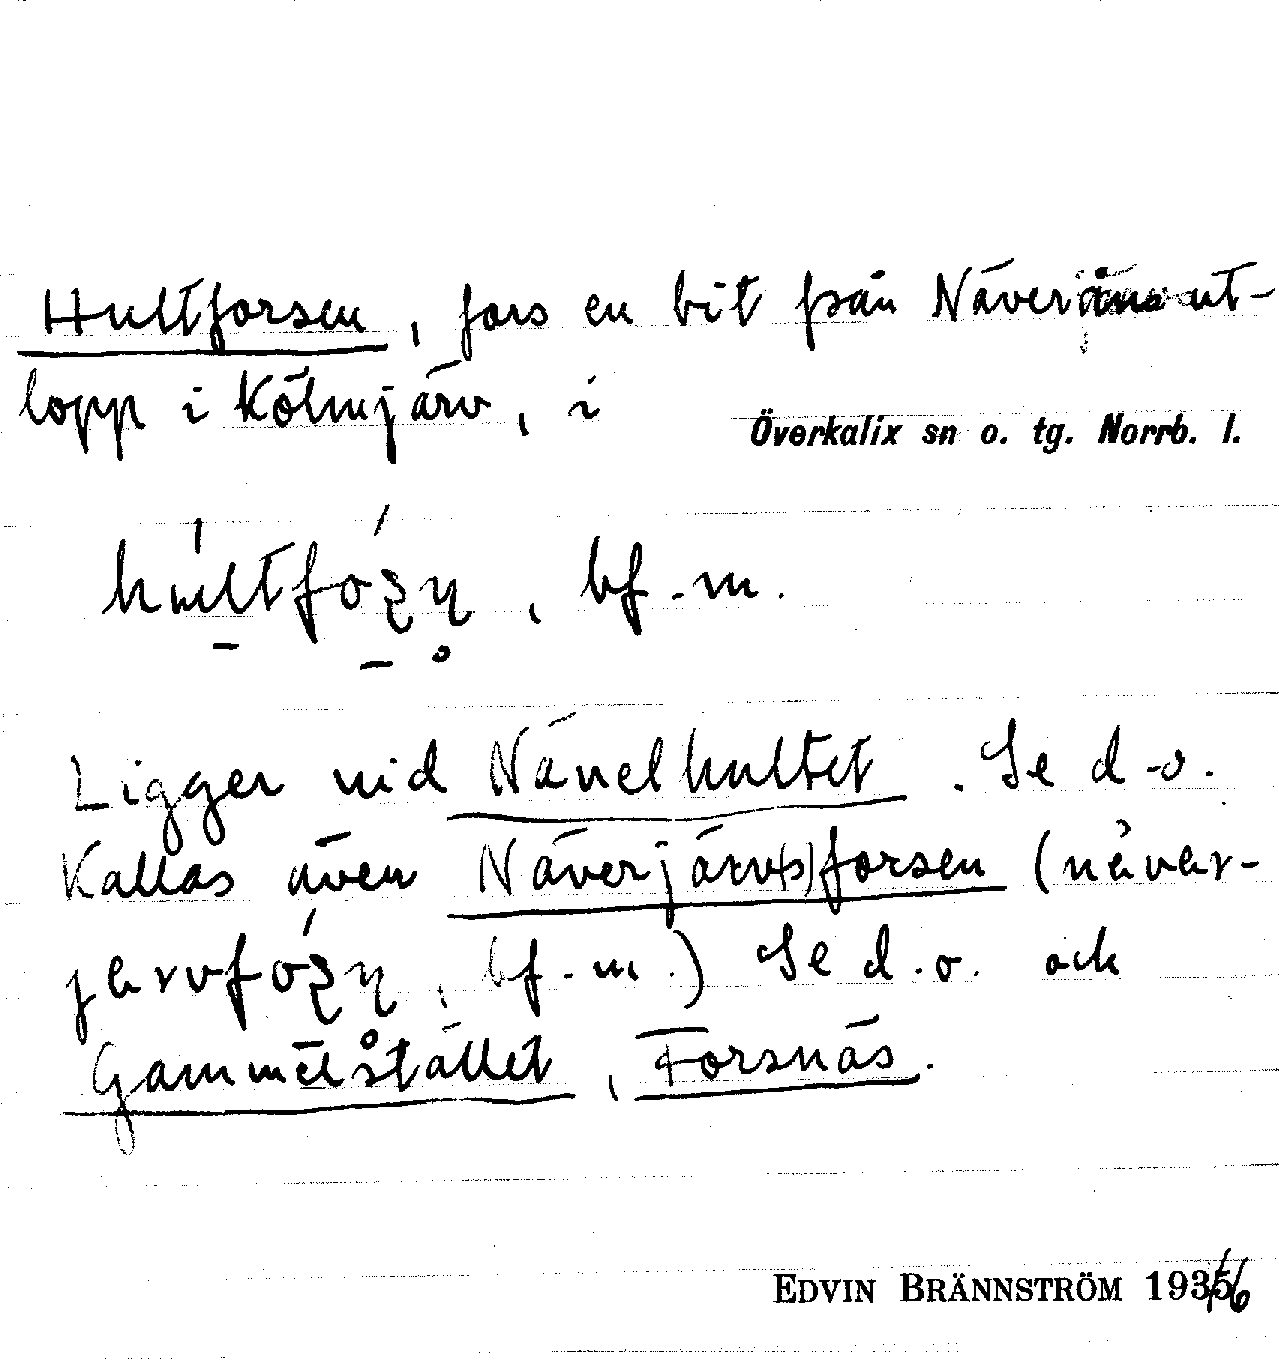 Hultforsen, fors en bit från Näveråns ut-
lopp i Kölmjärv, i
Överkalix sn o. tg. Norrb. l.
bf. m.
Ligger vid Nävelhultet. Se d.o.
Kallas även Näverjärv(s)forsen (nèver-
bf. m.) Se d.o. och
Gammelstället, Forsnäs.
EDVIN BRÄNNSTRÖM 1936